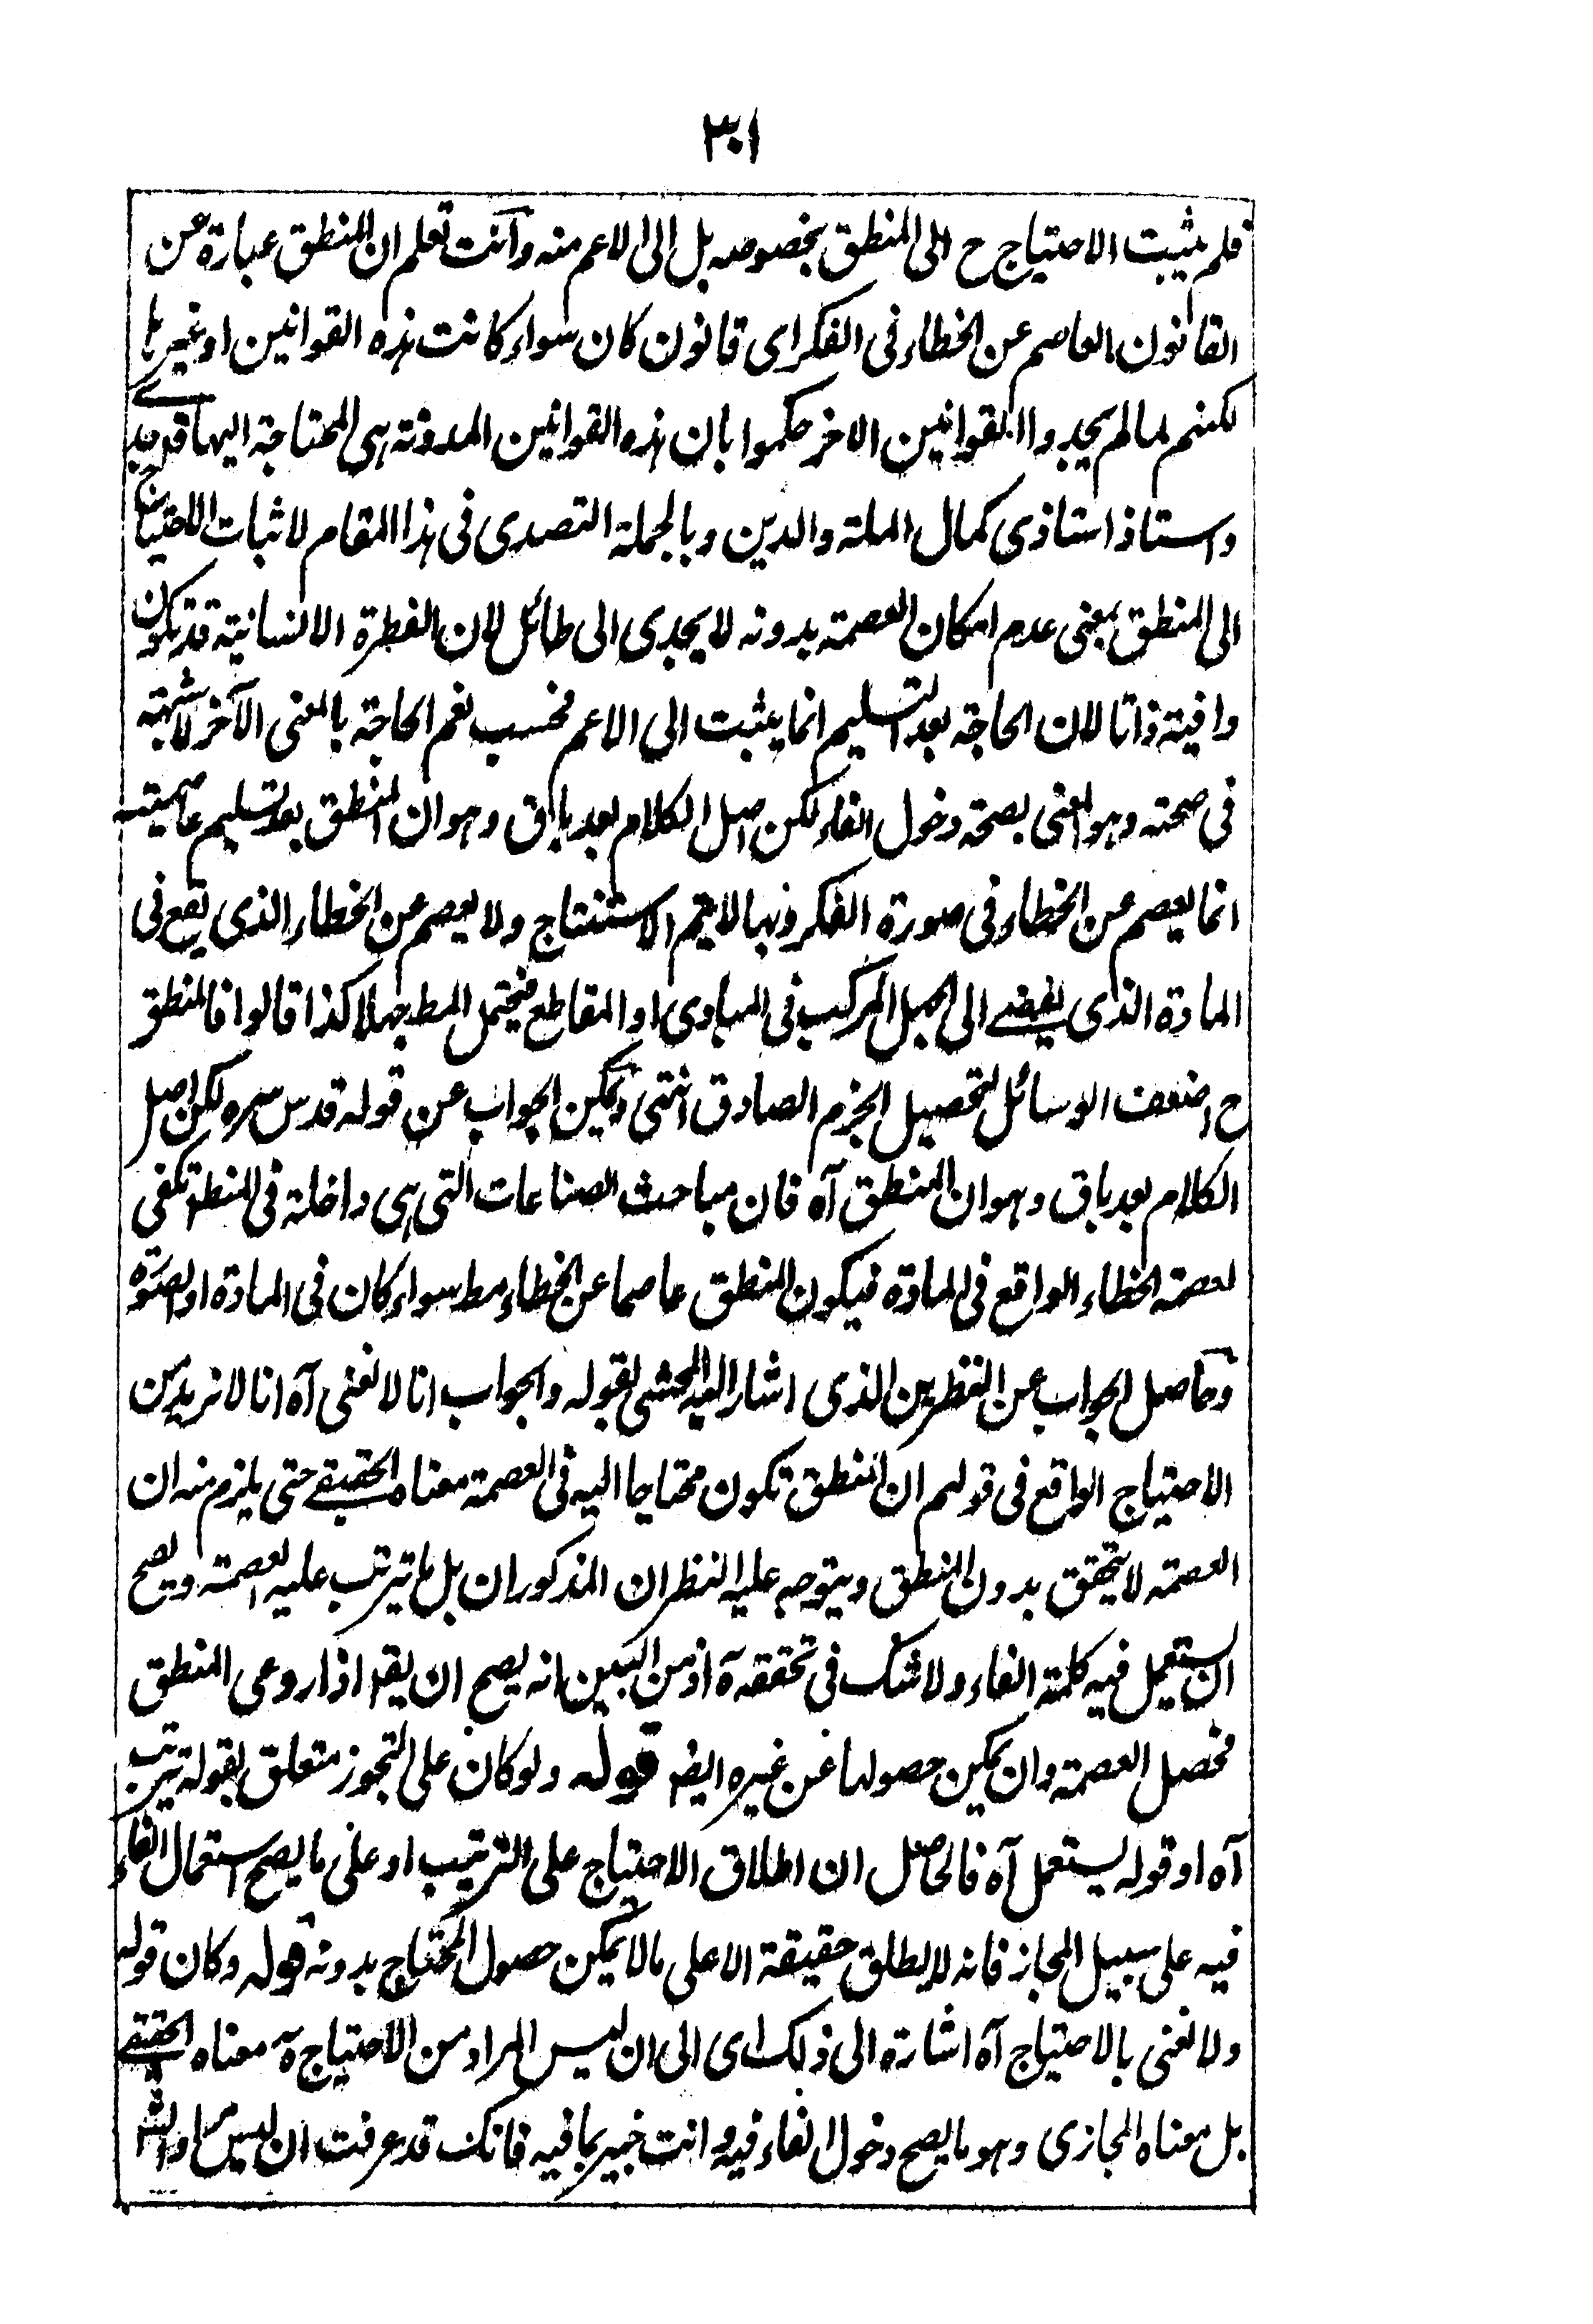 ٣٠١
فلم يثبت الاحتياج ح الى المنطق بخصوصه بل الى الاعم منه وانت تعلم ان المنطق عبارة عن
القانون العاصم عن الخطاء فى الفكر اى قانون كان سواء كانت هذه القوانين او غيرها
لكنهم لما لم يجدوا القوانين الاخر حكموا بان هذه القوانين المدونة هى المحتاجة اليها
واستاذ استاذى كمال الملة والدين وبالجملة التصدى فى هذا المقام لاثبات الاحتياج
الى المنطق بمعنى عدم امكان العصمة بدونه لا يجدى الى طائل لان الفطرة الانسانية قد تكون
وافية ذاتا لان الحاجة بعد التسليم انما يثبت الى الاعم فحسب نعم الحاجة بالمعنى الآخر لا شبهة
فى صحته وهو المعنى بصحة دخول الفاء لكن اصل الكلام بعد باق وهو ان المنطق بعد تسليم عاصميته
انما يعصم عن الخطاء فى صورة الفكر وبها لا يتم الاستنتاج ولا يعصم عن الخطاء الذى يقع فى
المادة الذى يفضى الى الجهل المركب فى المبادى او المقاطع فيحتمل المط جهلا كذا قالوا فالمنطق
ح اضعف الوسائل لتحصيل الجزم الصادق انتهى ويمكن الجواب عن قوله قدس سره لكن اصل
الكلام بعد باق وهو ان المنطق آه فان مباحث الصناعات التى هى داخلة فى المنطق تكفى
لعصمة الخطاء الواقع فى المادة فيكون المنطق عاصما عن الخطاء مط سواء كان فى المادة او الصورة
وحاصل الجواب عن النظرين الذى اشار اليه المحشى بقوله والجواب انا لا نعنى آه انا لا نريد من
الاحتياج الواقع فى قولهم ان المنطق تكون محتاجا اليه فى العصمة معناه الحقيقى حتى يلزم منه ان
العصمة لا يتحقق بدون المنطق ويتوجه عليه النظران المذكوران بل ما يترتب عليه العصمة ويصح
ان يستعمل فيه كلمة الفاء ولا شك فى تحققه آه اذ من البين انه يصح ان يقر اذا روعى المنطق
فحصل العصمة وان يمكن حصولها عن غيره ايضر قوله ولو كان على التجوز متعلق بقوله يترتب
آه او قوله يستعمل آه فالحاصل ان اطلاق الاحتياج على الترتيب او على ما يصح استعمال الفاء
فيه على سبيل المجاز فانه لا يطلق حقيقة الا على ما لا يمكن حصول المحتاج بدونه قوله وكان قوله
ولا نعنى بالاحتياج آه اشارة الى ذلك اى الى ان ليس المراد من الاحتياج آه معناه الحقيقى
بل معناه المجازى وهو ما يصح دخول الفاء فيه وانت خبير بما فيه فانك قد عرفت ان ليس